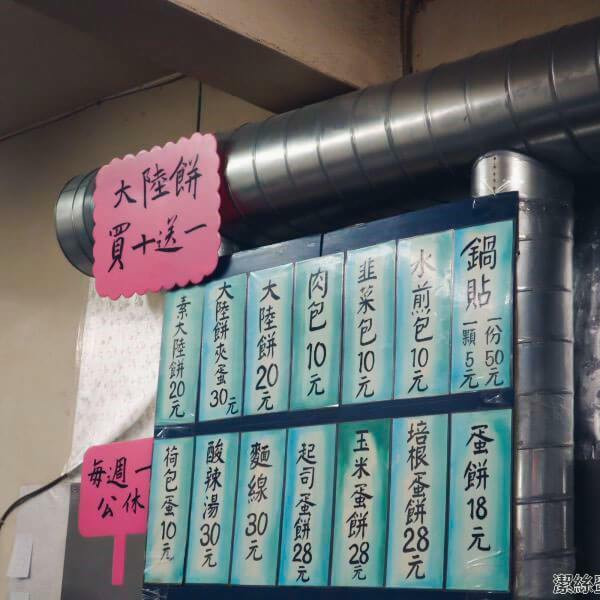 大陸餅
買十送一
鍋貼
一份50元
一顆5元
水煎包10元
韭菜包10元
肉包10元
大陸餅20元
大陸餅夾蛋30元
素大陸餅20元
蛋餅18元
培根蛋餅28元
玉米蛋餅28元
起司蛋餅28元
麵線30元
酸辣湯30元
荷包蛋10元
每週一
公休
潔絲